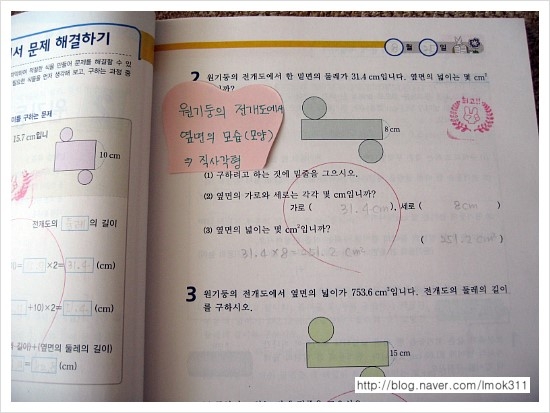 서 문제 해결하기
구하는 문제
15.7 cm입니
10 cm
전개도의 둘레의 길이
×2= 31.4 (cm)
+10)×2= (cm)
길이)+(옆면의 둘레의 길이)
(cm)
8 월 25 일
2 원기둥의 전개도에서 한 밑면의 둘레가 31.4 cm입니다. 옆면의 넓이는 몇 cm²
니까?
원기둥의 전개도에서
옆면의 모습(모양)
직사각형
8 cm
최고!!
(1) 구하려고 하는 것에 밑줄을 그으시오.
(2) 옆면의 가로와 세로는 각각 몇 cm입니까?
가로 ( 31.4cm ), 세로 ( 8cm )
(3) 옆면의 넓이는 몇 cm²입니까?
( 251.2 cm² )
31.4×8=251.2 cm²
3 원기둥의 전개도에서 옆면의 넓이가 753.6 cm²입니다. 전개도의 둘레의 길이
를 구하시오.
15 cm
http://blog.naver.com/lmok311